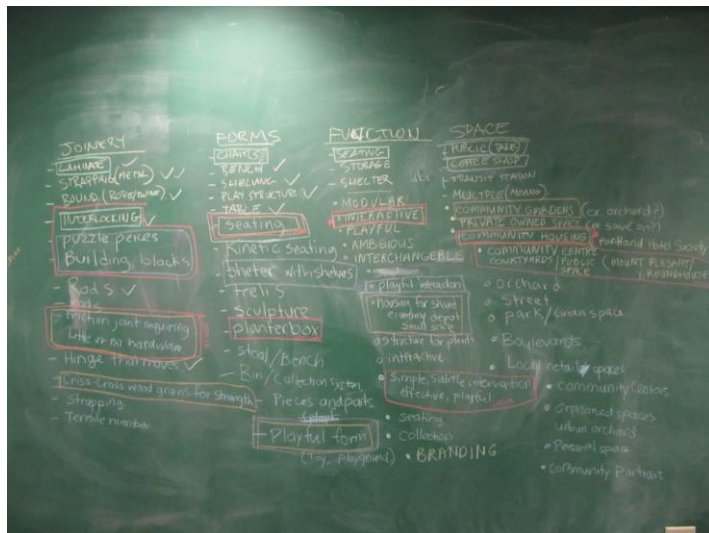 JOINERY
- LAMINATE ✓
- STRAPPING (METAL) ✓✓
- BOUND (ROPE/TWINE) ✓
- INTERLOCKING ✓
- puzzle peices
- Building blocks
- Rods ✓
- friction joint
Little or no hardware
- Hinge that moves ✓
- Criss-Cross wood grains for strength
- Strapping
- Tensile member
FORMS
- CHAIRS
- BENCH ✓
- SHELVING ✓
- PLAY STRUCTURE ✓
- TABLE ✓
- Seating
- Kinetic Seating
- Shelter with shelves
- trellis
- Sculpture
- planterbox
- stool/Bench
- Bin/Collection system
- Pieces and parts
- Playful form
(Toy, playground)
FUNCTION
- SEATING
- STORAGE
- SHELTER
• MODULAR
• INTERACTIVE
• PLAYFUL
• AMBIGIOUS
• INTERCHANGEBLE
• playful interaction
small scale
structure for plants
interactive
• Simple, subtle intervention
effective, playful
• Seating
• Collection
• BRANDING
SPACE
- PUBLIC
- COFFEE SHOP
- TRANSIT STATION
- MULTIPLE (MOVING)
• COMMUNITY GARDENS (ex orchard?)
• PRIVATE OWNED SPACE
• COMMUNITY HOUSING Portland Hotel Society
• COMMUNITY CENTRE
COURTYARDS/PUBLIC SPACE (MOUNT PLESANT/ROUNDHOUSE
• orchard
• Street
• park/Green space
• Boulevards
• Local retail spaces
• Community Centers
• spaces
urban orchard
• Personal space
• Community Partners